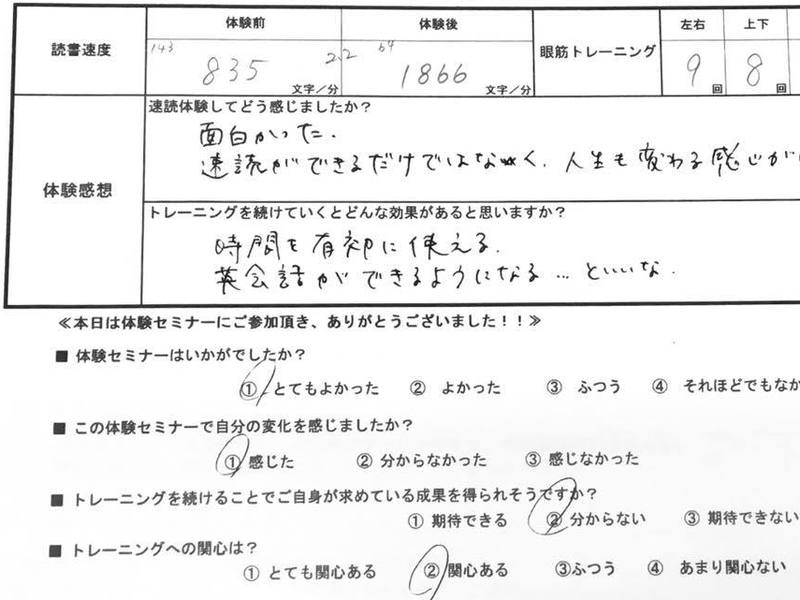 体験前 体験後 左右 上下
読書速度 143 835 文字／分 2.2 64 1866 文字／分 眼筋トレーニング 9 回 8 回
速読体験してどう感じましたか？
面白かった.
体験感想 速読ができるだけではなく、人生も変わる感じが
トレーニングを続けていくとどんな効果があると思いますか？
時間を有効に使える.
英会話ができるようになる…といいな.
≪本日は体験セミナーにご参加頂き、ありがとうございました！！≫
■ 体験セミナーはいかがでしたか？
① とてもよかった ② よかった ③ ふつう ④ それほどでもなか
■ この体験セミナーで自分の変化を感じましたか？
① 感じた ② 分からなかった ③ 感じなかった
■ トレーニングを続けることでご自身が求めている成果を得られそうですか？
① 期待できる ② 分からない ③ 期待できない
■ トレーニングへの関心は？
① とても関心ある ② 関心ある ③ふつう ④ あまり関心ない